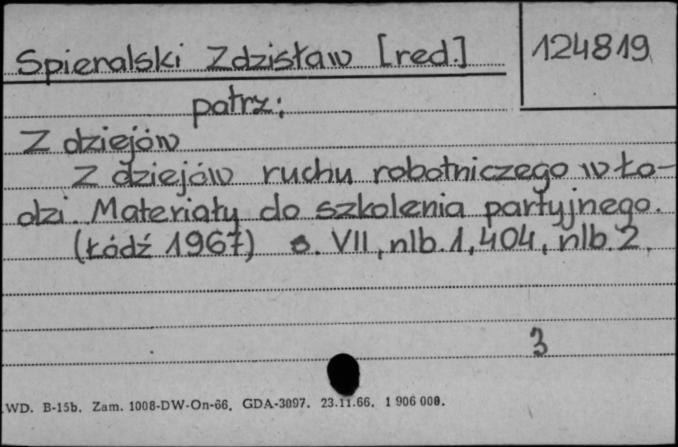 Spieralski Zdzisław [red.]
124819
patrz:
Z dziejów
Z dziejów ruchu robotniczego w Ło-
dzi. Materiały do szkolenia partyjnego.
(Łódź 1967) s. VII, nlb. 1, 404, nlb. 2.
3
WD. B-15b. Zam. 1008-DW-On-66. GDA-3097. 23.11.66. 1 906 000.